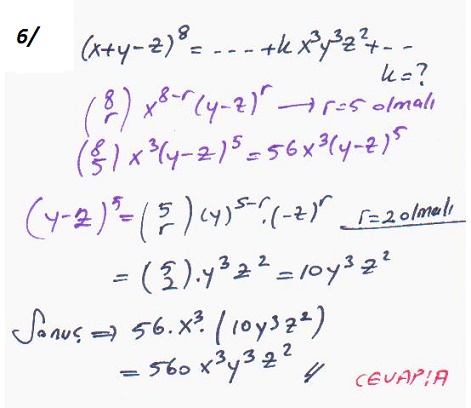 6/
(x+y-z)^8 = ---- + k x^3y^3z^2 + --
k=?
(8 r) x^{8-r} (y-z)^r → r=5 olmalı
(8 5) x^3 (y-z)^5 = 56x^3(y-z)^5
(y-z)^5 = (5 r) (y)^{5-r}.(-z)^r r=2 olmalı
= (5 2).y^3z^2 = 10y^3z^2
Sonuç ⇒ 56.x^3.(10y^3z^2)
= 560x^3y^3z^2 //
CEVAP/A